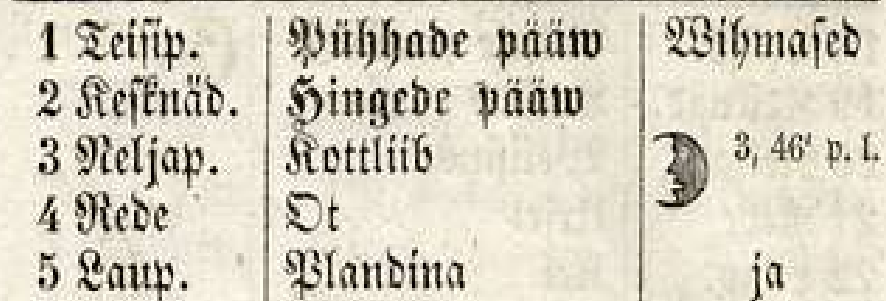 1 Teisip. Pühhade pääw Wihmased
2 Keſknäd. Hingede pääw
3 Neljap. Kottliib 3, 46' p. l.
4 Rede Ot
5 Laup. Plandina ja